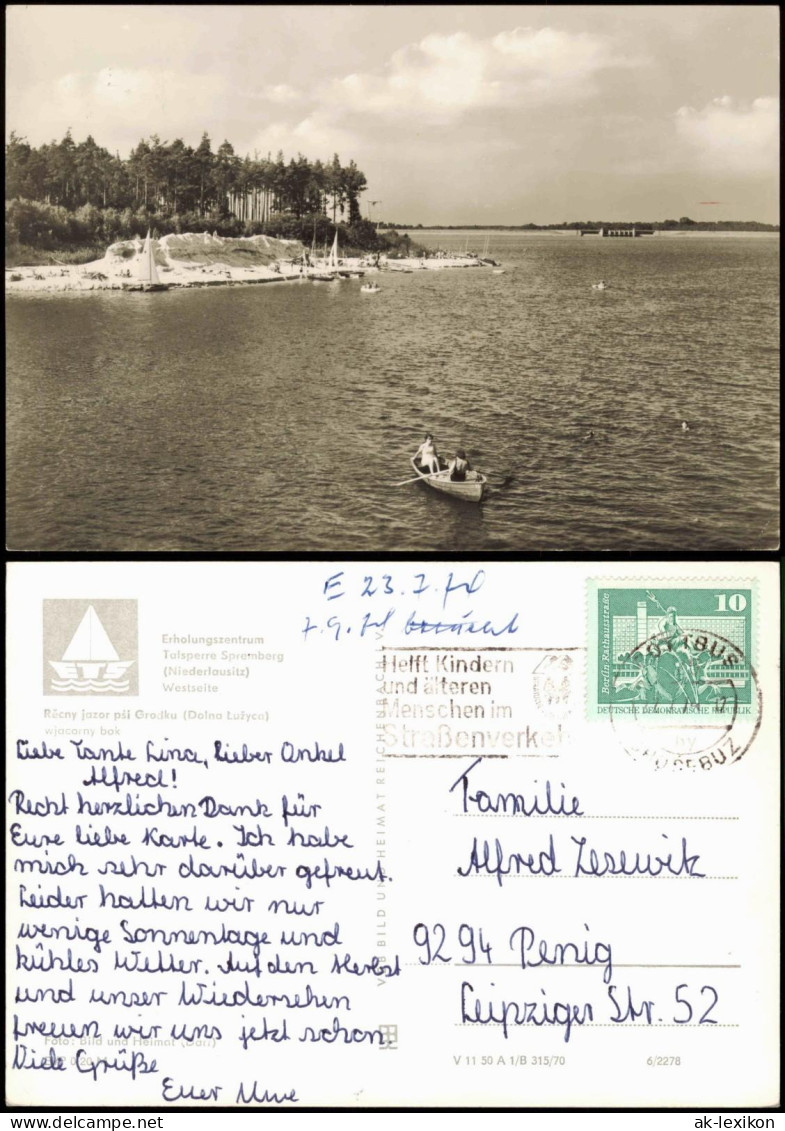 E 23.7.74
7.9.74
Erholungszentrum
Talsperre Spremberg
(Niederlausitz)
Westseite
Rěcny jazor pśi Grodku (Dolna Łužyca)
wjacorny bok
ETS
Liebe Tante Lina, Lieber Onkel
Alfred!
Recht herzlichen Dank für
Eure liebe Karte. Ich habe
mich sehr darüber gefreut.
Leider hatten wir nur
wenige Sonnentage und
kühles Wetter. Auf den Herbst
und unser Wiedersehen
freuen wir uns jetzt schon.
Viele Grüße
Euer Uwe
Foto: Bild und Heimat (Darr)
VEB BILD UND HEIMAT REICHENBACH
Helft Kindern
und älteren
Menschen im
Straßenverkehr
10
Berlin · Rathausstraße
DEUTSCHE DEMOKRATISCHE REPUBLIK
COTTBUS
CHOSEBUZ
by
Familie
Alfred Zesewitz
9294 Penig
Leipziger Str. 52
V 11 50 A 1/B 315/70
6/2278
ak-lexikon